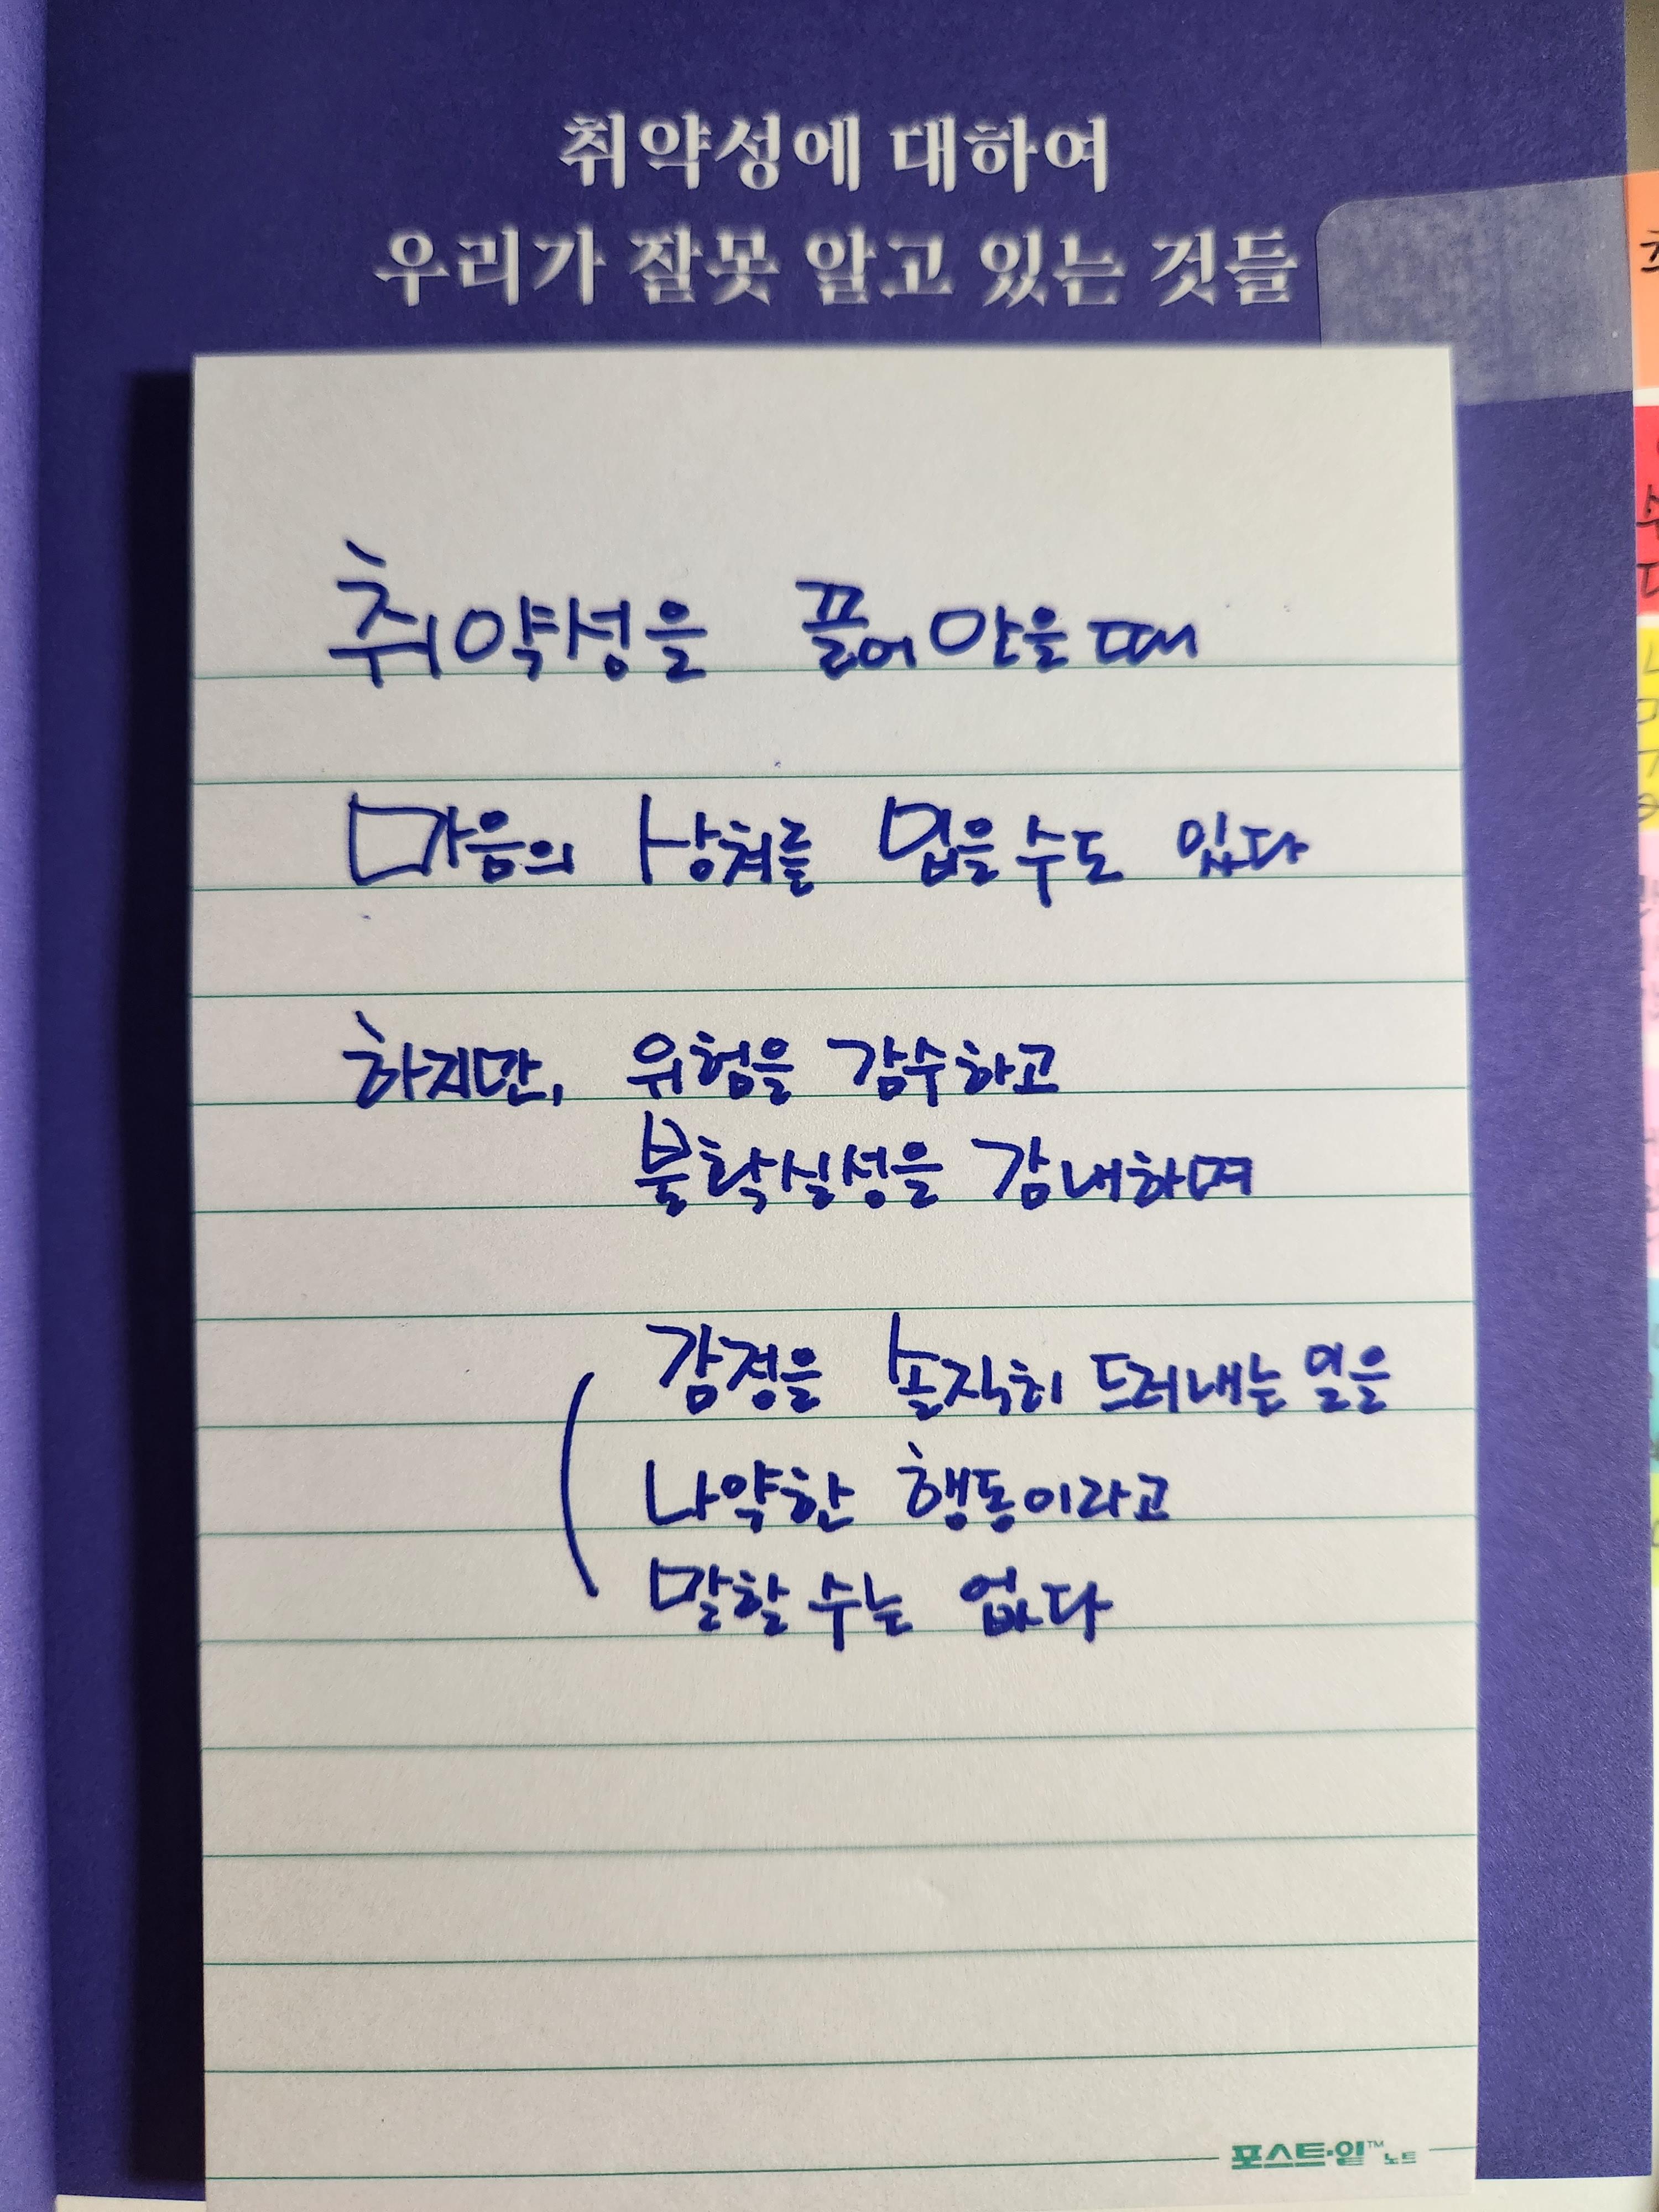 취약성에 대하여
우리가 잘못 알고 있는 것들
취약성을 끌어안을 때
마음의 상처를 입을 수도 있다
하지만, 위험을 감수하고
불확실성을 감내하며
감정을 솔직히 드러내는 일을
나약한 행동이라고
말할 수는 없다
포스트·잇™ 노트